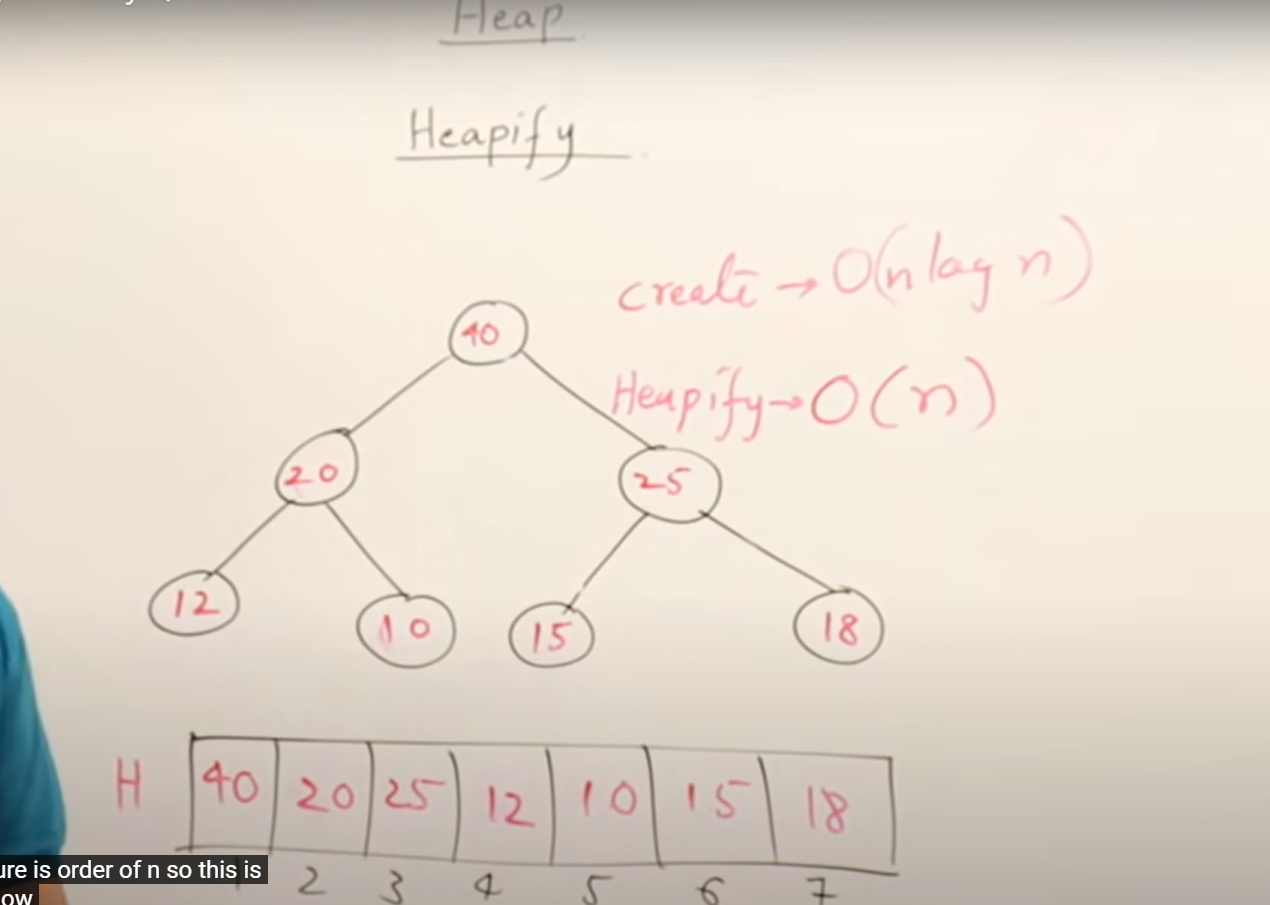 Heap
Heapify
create → O(n log n)
40
Heapify → O(n)
20 25
12 10 15 18
H 40 20 25 12 10 15 18
1 2 3 4 5 6 7
ure is order of n so this is
ow